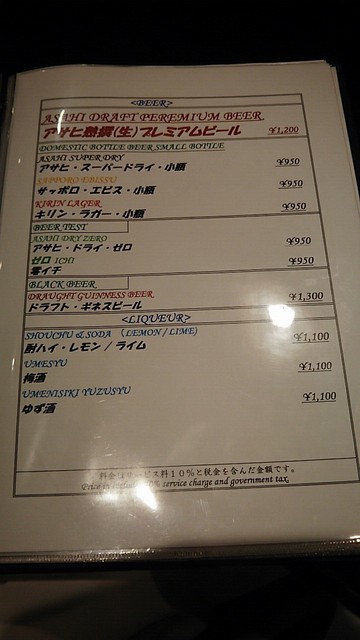 <BEER>
ASAHI DRAFT PEREMIUM BEER
アサヒ熟撰(生)プレミアムビール ¥1,200
DOMESTIC BOTTLE BEER SMALL BOTTLE
ASAHI SUPER DRY
アサヒ・スーパードライ・小瓶 ¥950
SAPPORO EBISSU
サッポロ・エビス・小瓶 ¥950
KIRIN LAGER
キリン・ラガー・小瓶 ¥950
BEER TEST
ASAHI DRY ZERO
アサヒ・ドライ・ゼロ ¥950
ゼロ ICHI
零イチ ¥950
BLACK BEER
DRAUGHT GUINNESS BEER
ドラフト・ギネスビール ¥1,300
<LIQUEUR>
SHOUCHU & SODA (LEMON / LIME)
酎ハイ・レモン / ライム ¥1,100
UMESYU
梅酒 ¥1,100
UMENISIKI YUZUSYU
ゆず酒 ¥1,100
料金はサービス料10%と税金を含んだ金額です。
Price is include 10% service charge and government tax.